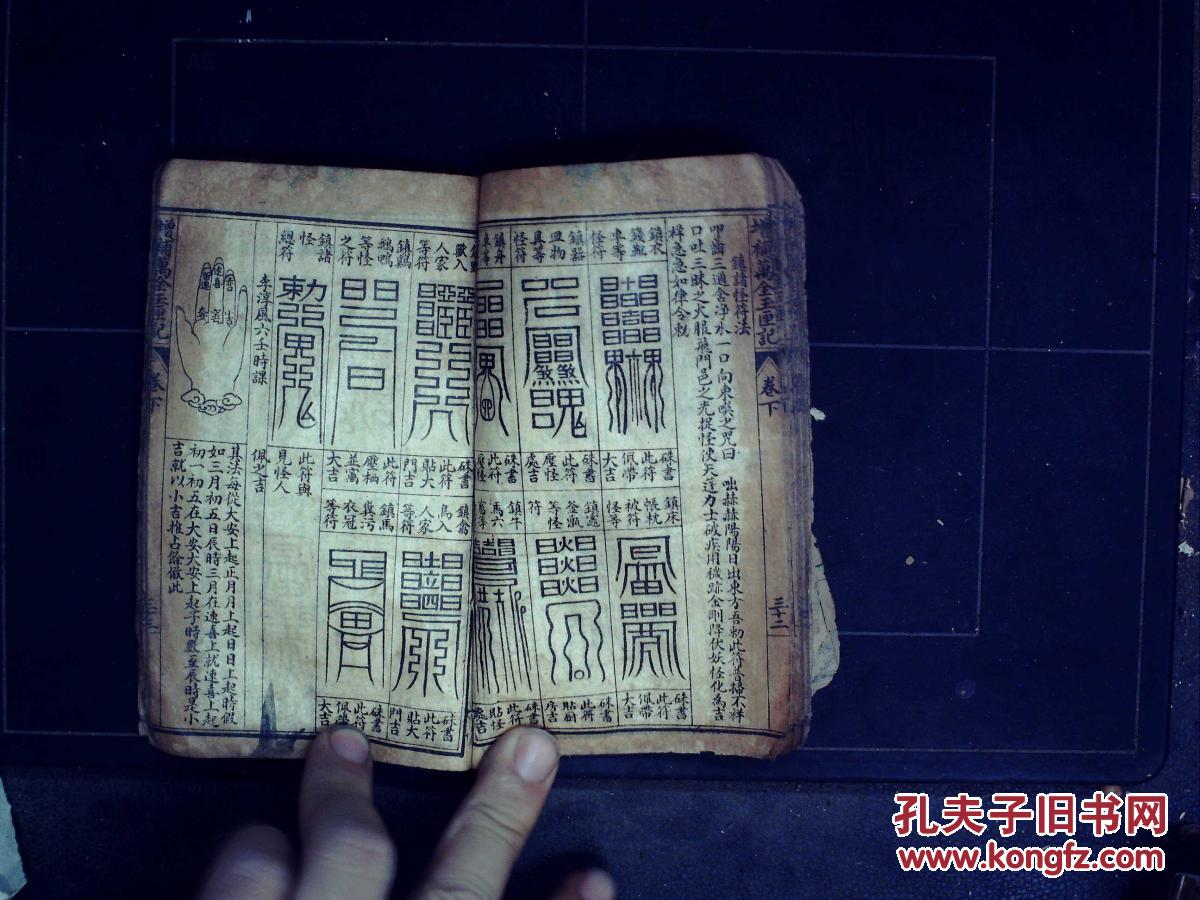 增補萬全玉匣記
卷下
三十二
鎮諸怪符法
叩齒三通含淨水一口向東噀之咒曰
咄赫赫陽陽日出東方吾勅此符普掃不祥
口吐三昧之火服飛門邑之光捉怪使天蓬力士破疾用穢跡金剛降伏妖怪化為吉
祥急急如律令勅
鎮衣
錢甑
車等
怪符
硃書
此符
佩帶
大吉
鎮器
皿物
具等
怪符
硃書
此符
壓怪
處吉
鎮舟
車等
硃書
此符
壓怪
獸入
人家
等符
硃書
此符
貼大
門吉
鎮鷄
鵝鴨
等怪
之符
此符
壓栖
並窩
大吉
鎮諸
怪
總符
此符與
見怪人
佩之吉
鎮床
帳枕
被符
怪等
硃書
此符
佩帶
大吉
鎮竈
釜甑
等怪
符
硃書
此符
貼厨
房吉
鎮牛
馬六
畜等
硃書
此符
貼怪
處吉
鎮禽
鳥入
人家
等符
硃書
此符
貼大
門吉
鎮馬
糞污
衣冠
等符
硃書
此符
佩帶
大吉
李淳風六壬時課
速喜
留連
大安
赤口
小吉
空亡
其法每從大安上起正月月上起日日上起時假
如三月初五日辰時三月在速喜上就速喜上起
初一初五在大安大安上起子時數至辰時是小
吉就以小吉推占餘倣此
增補萬全玉匣記
卷下
A5
孔夫子旧书网
www.kongfz.com